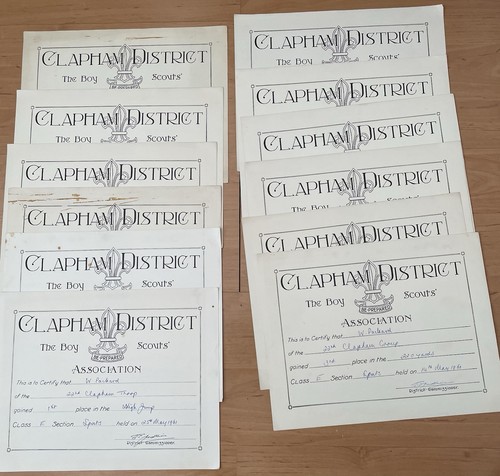 CLAPHAM DISTRICT
THE BOY SCOUTS'
BE PREPARED
CLAPHAM DISTRICT
THE BOY SCOUTS'
CLAPHAM DISTRICT
CLAPHAM DISTRICT
CLAPHAM DISTRICT
THE BOY SCOUTS'
CLAPHAM DISTRICT
BE PREPARED
ASSOCIATION
This is to Certify that W Packard
of the 22nd Clapham Troop
gained 1st place in the High Jump
CLASS E Section Sports held on May 1961
District Commissioner.
CLAPHAM DISTRICT
THE BOY SCOUTS'
CLAPHAM DISTRICT
CLAPHAM DISTRICT
THE BOY SCOUTS'
CLAPHAM DISTRICT
CLAPHAM DISTRICT
CLAPHAM DISTRICT
THE BOY SCOUTS'
BE PREPARED
ASSOCIATION
This is to Certify that W Packard
of the Clapham Group
gained place in the 220 yards
CLASS E Section Sports held on May 1961
District Commissioner.